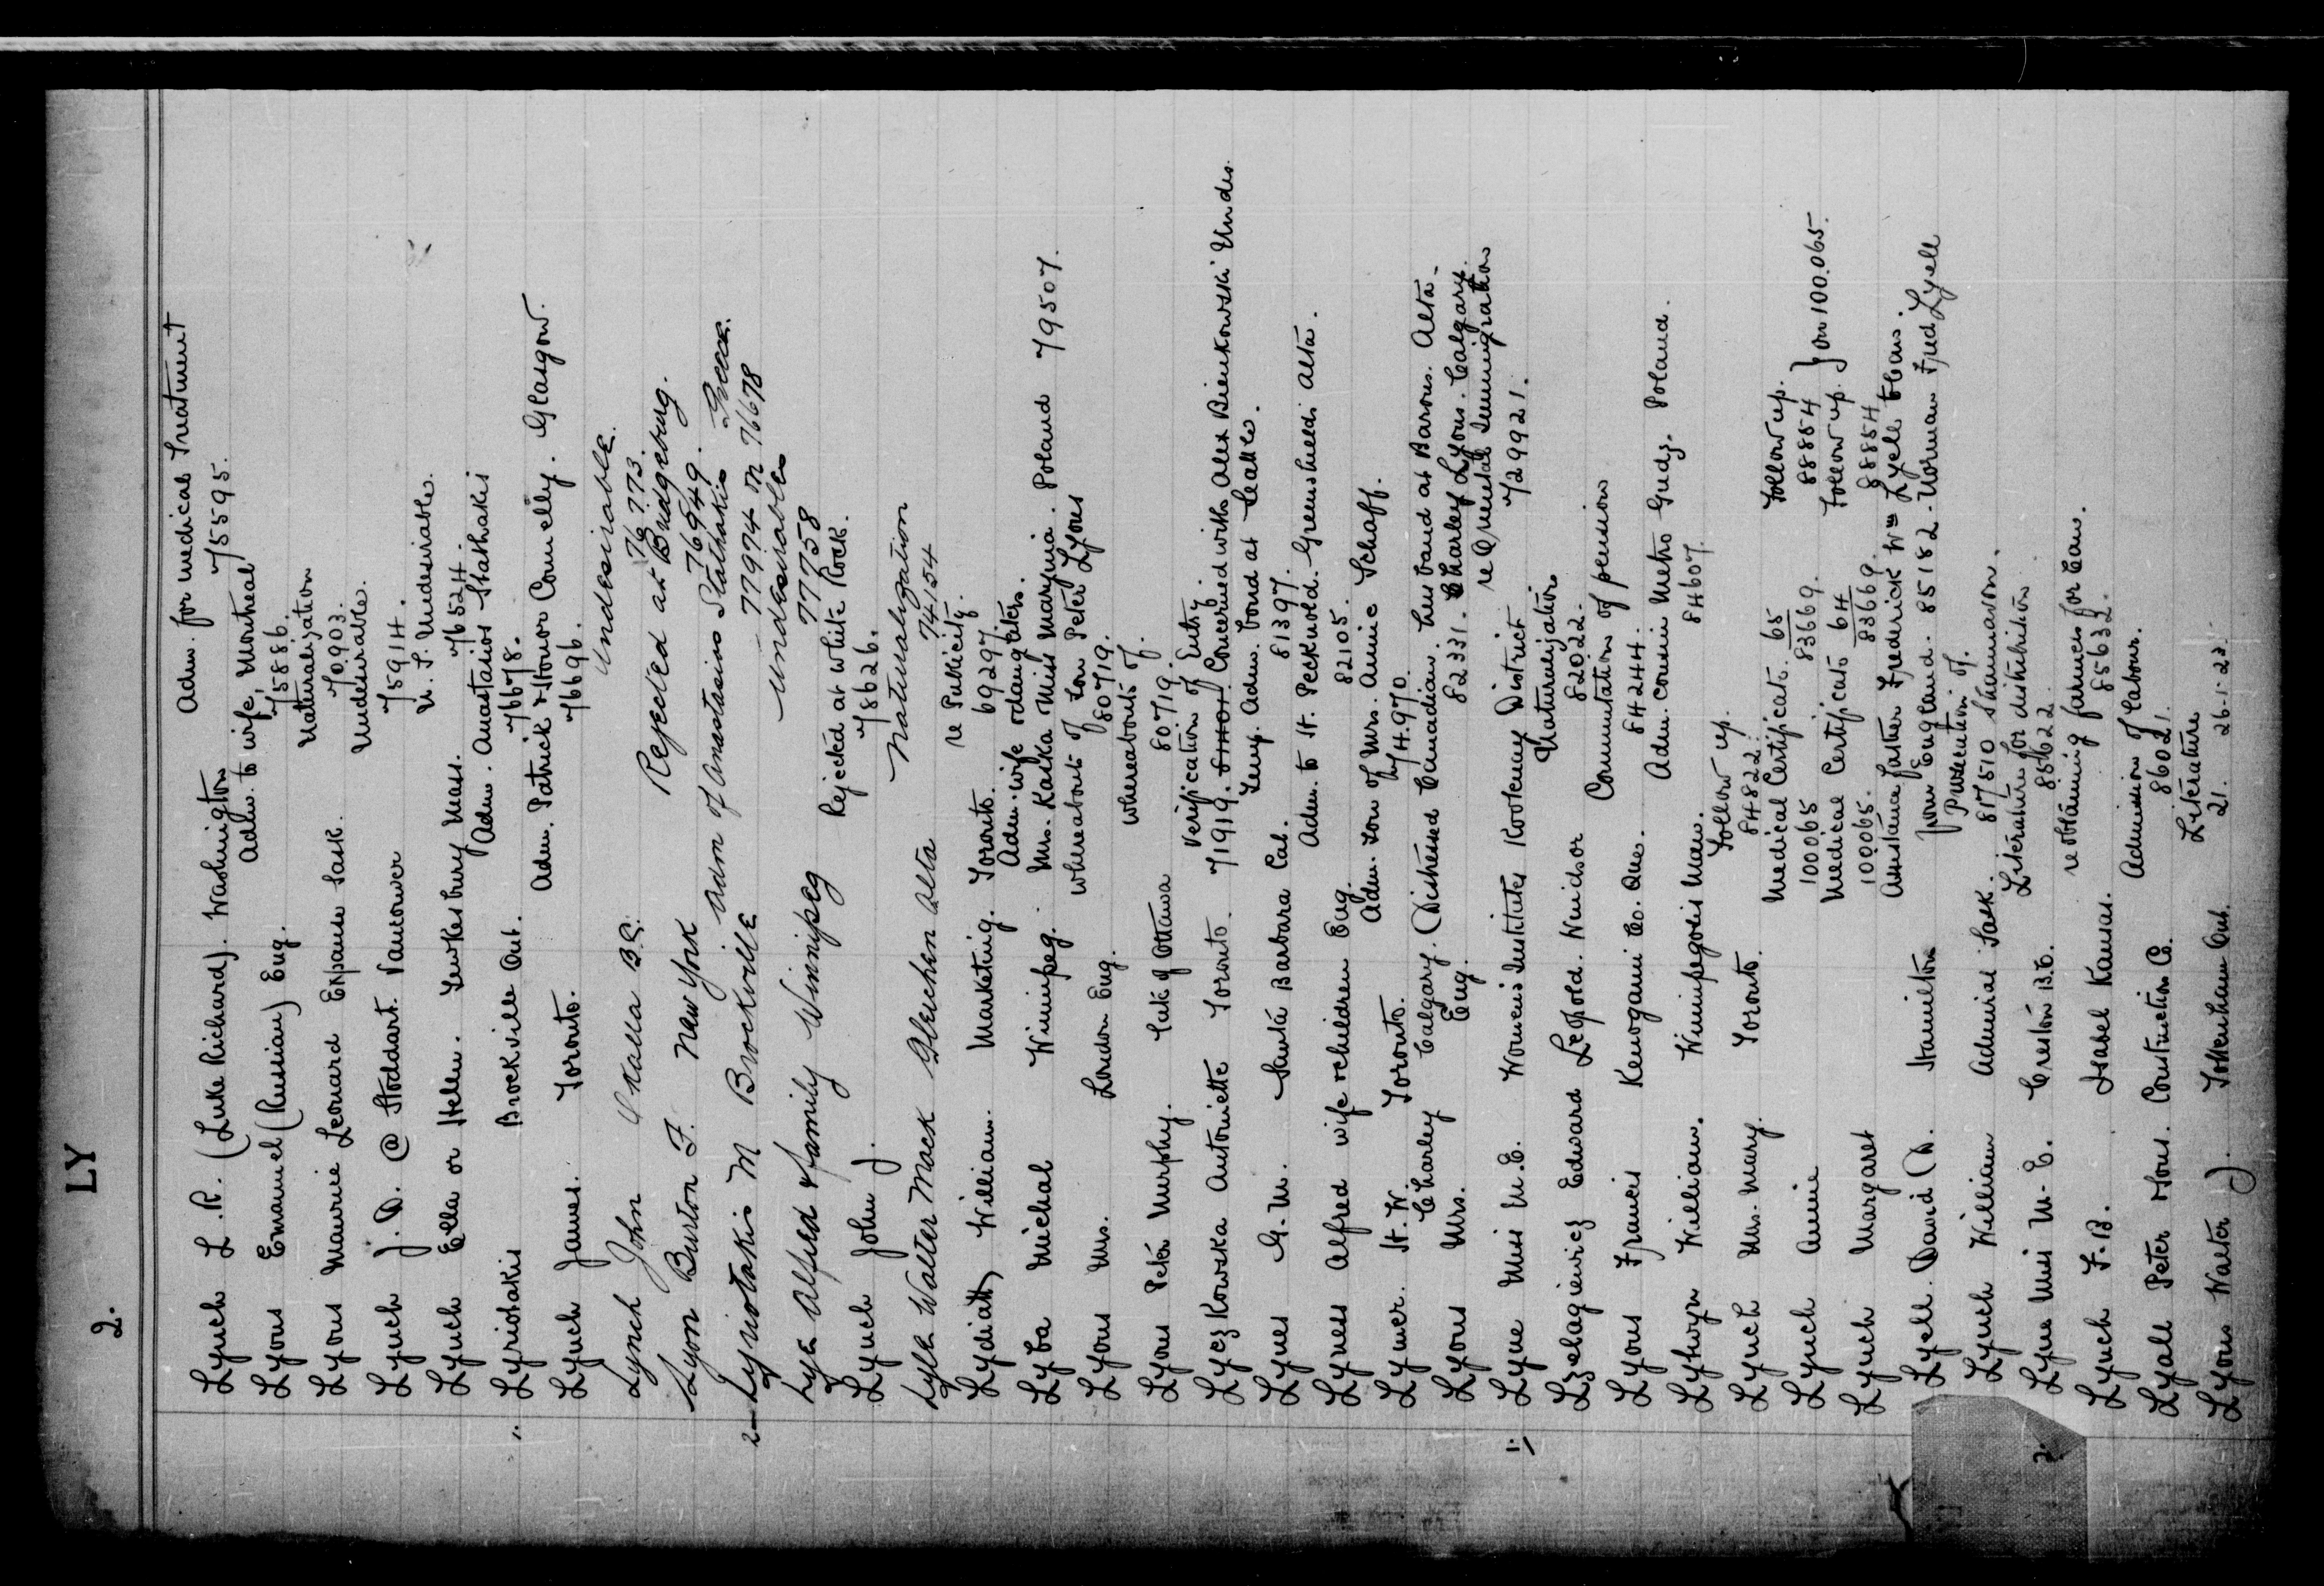 LY
2.
Lynch L.R. (Luke Richard). Washington
Adm. for medical Treatment
75595.
Lyons Emanuel (Russian) Eng.
Adm. to wife, Montreal
75886.
Lyons Maurice Leonard Expanse Sask.
Naturalization
70903.
Lynch J. D. @ Stoddart. Vancouver
Undesirable.
75914.
Lynch Ella or Helen. Tewkesbury Mass.
U. S. Undesirable.
76524.
1. Lyriotakis Brockville Ont.
Adm. Anastasios Stathakis
76678.
Lynch James. Toronto.
Adm. Patrick & Honor Connelly. Glasgow.
76696.
Lynch John Okalla B.C.
Undesirable.
76773.
Lyon Burton F. New York
Rejected at Bridgeburg.
76949.
2 Lyriotakis M Brockville
Adm of Anastasios Stathakis Greece.
77974 on 76678
Lye Alfred & family Winnipeg
Undesirables
77758
Lynch John J.
Rejected at White Rock.
78626.
Lyle Walter Mack Gleichen Alta
Naturalization
74154
Lydiatt, William. Marketing. Toronto.
re Publicity.
69297.
Lyba Michal Winnipeg.
Adm. wife & daughters.
Mrs. Kaska & Miss Marynia. Poland 79507.
Lyons Mrs. London Eng.
Whereabouts of son Peter Lyons
80719.
Lyons Peter Murphy. Ottawa
Whereabouts of.
80719.
Lyczkowska Antoniette Toronto.
Verification of Entry
71919. Concerned with Alex Bienkowski Undes.
Lynes G. M. Santa Barbara Cal.
Temp. Adm. bond at Seattle.
81397.
Lynes Alfred wife & children Eng.
Adm. to H. Pecknold. Greenshields Alta.
82105.
Lymer. H. W. Toronto.
Adm. son of Mrs. Annie Schaff.
74.970.
Charley Calgary. (Distressed Canadian. husband at Barons. Alta.
Lyons Mrs. Eng.
82331. Charley Lyons. Calgary.
1. Lyne Miss M.E. Women's Institutes Kootenay District
re Oriental Immigration
72992 1.
Lzelagiewicz Edward Leopold. Windsor
Naturalization
82022.
Lyons Francis Kenogami Co. Que.
Commutation of pension
84244.
Lytwyn William. Winnipegosis Man.
Adm. cousin Metro Gudz. Poland.
84607.
Lynch Mrs. Mary. Toronto.
Follow up.
84822.
Lynch Annie
Medical Certificate. 65 Follow up.
100065 83669. 88854
Lynch Margaret
Medical Certificate 64 Follow up. } on 100.065.
100065. 83669. 88854
Lyell. David D. Hamilton
Assistance father Frederick Wm Lyell & fam.
from England. 85182. Norman Fred Lyell
Lynch William Admiral Sask.
Prosecution of.
87510 Shannavon.
2. Lyne Miss M. E. Creston B.C.
Literature for distribution
85622.
Lynch F.B. Isabel Kansas.
re obtaining farmers for Can.
85632.
Lyall Peter & Sons. Construction Co.
Admission of labour.
8602 1.
Lyons Walter J. Tottenham Ont.
Literature
21. 26-1-23.